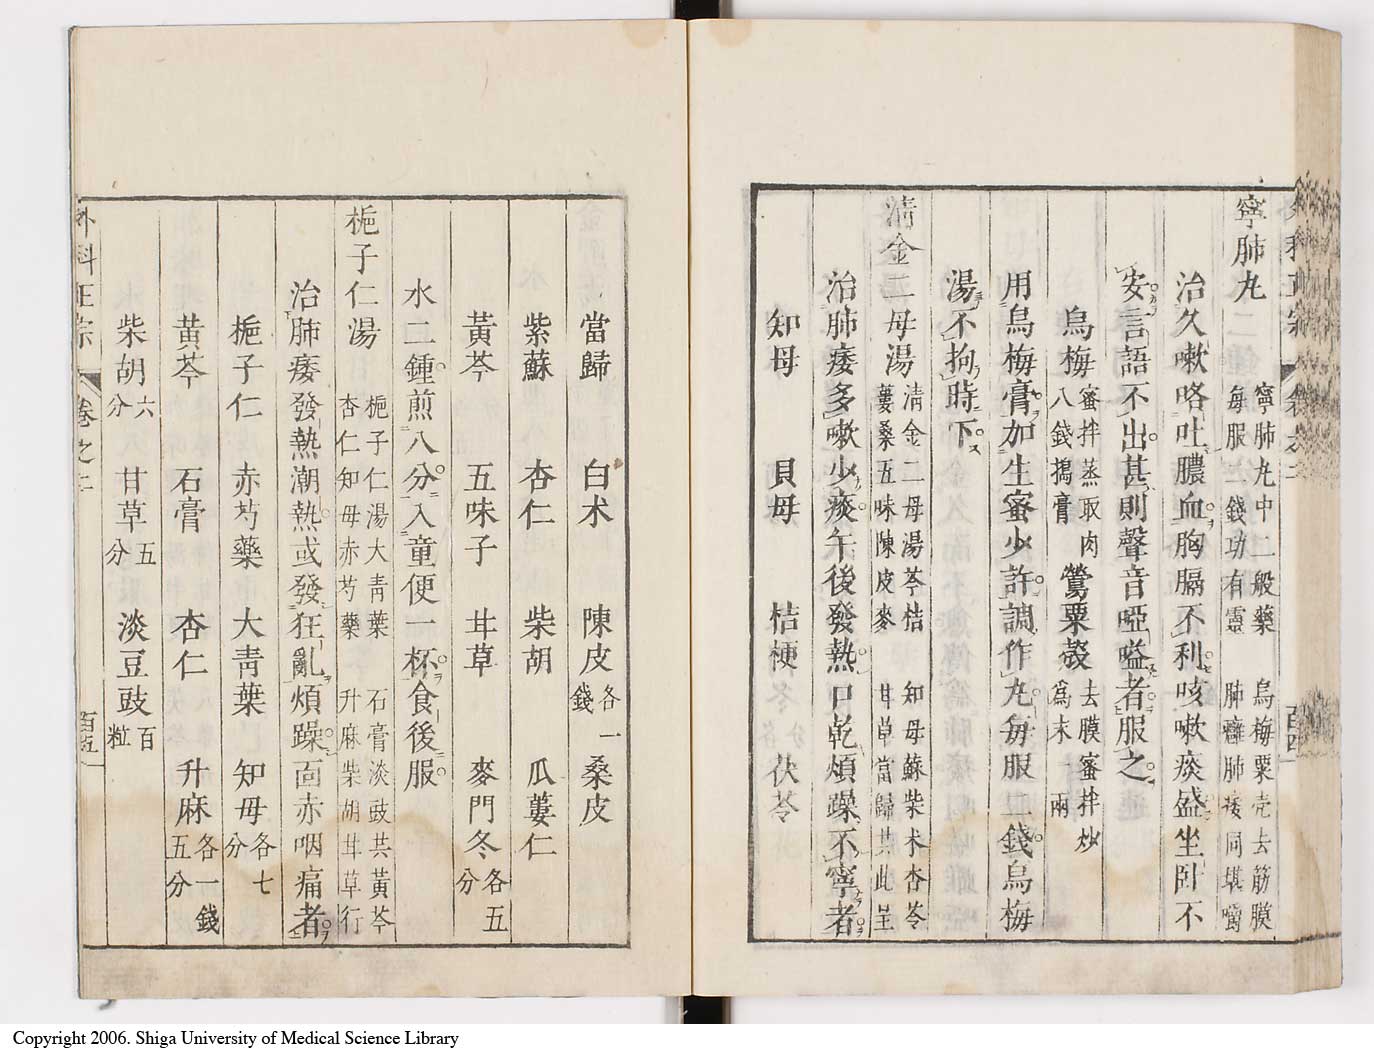 寧肺丸 寧肺丸中二般藥 烏梅粟壳去筋膜
每服二錢功有靈 肺癰肺痿同堪嚼
治久嗽咯吐膿血胸膈不利咳嗽痰盛坐卧不
安言語不出甚則聲音啞嗌者服之
烏梅 蜜拌蒸取肉八錢搗膏 鶯粟殼 去膜蜜拌炒爲末 兩
用烏梅膏加生蜜少許調作丸每服二錢烏梅
湯不拘時下
清金二母湯 清金二母湯苓桔 知母蘇柴术杏苓
蔞桑五味陳皮麥 甘草當歸共此呈
治肺痿多嗽少痰午後發熱口乾煩躁不寧者
知母 貝母 桔梗 茯苓
當歸 白术 陳皮 各一錢 桑皮
紫蘇 杏仁 柴胡 瓜蔞仁
黃芩 五味子 甘草 麥門冬 各五分
水二鍾煎八分入童便一杯食後服
梔子仁湯 梔子仁湯大青葉 石膏淡豉共黃芩
杏仁知母赤芍藥 升麻柴胡甘草行
治肺痿發熱潮熱或發狂亂煩躁面赤咽痛者
梔子仁 赤芍藥 大青葉 知母 各七分
黃芩 石膏 杏仁 升麻 各一錢五分
柴胡 六分 甘草 五分 淡豆豉 百粒
外科正宗 卷之二 百五
Copyright 2006. Shiga University of Medical Science Library